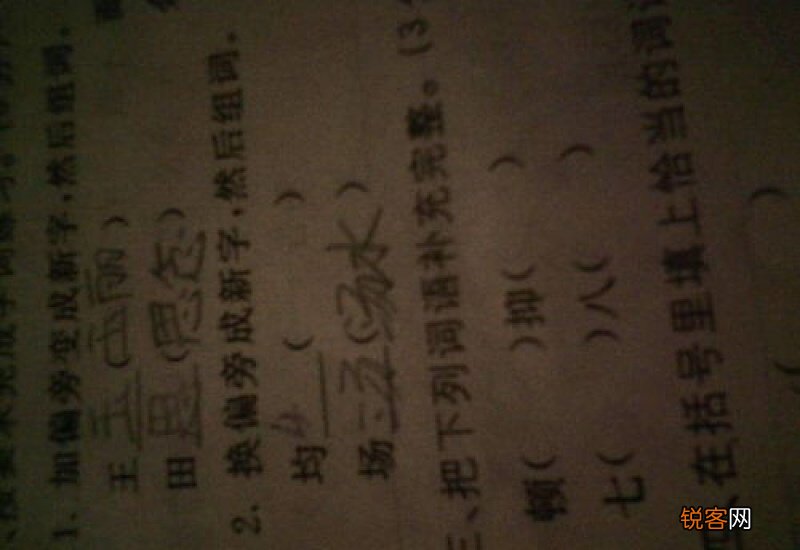 、按要求完成字词练习。
1. 加偏旁变成新字,然后组词。
王 (      )
田 思 (思念)
2. 换偏旁成新字,然后组词。
均 (      )
场 汤 (汤水)
三、把下列词语补充完整。(3
顿(      )抑(      )
七(      )八(      )
、在括号里填上恰当的词
锐客网